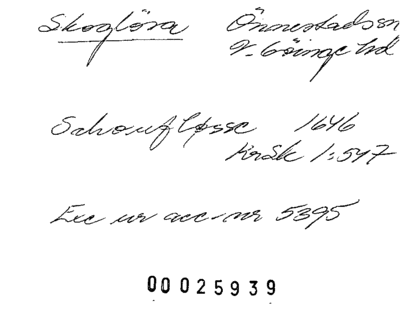 Skoglösa Önnestads sn
V. Göinge hd
Schouf løsse 1646
KrSk 1:547
Exc ur acc-nr 5395
00025939